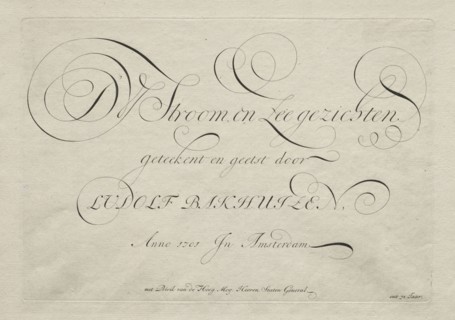 D'Y Stroom, en Zee gezichten
geteekent en geetst door
LUDOLF BAKHUIZEN.
Anno 1701 In Amsterdam
met Previl. van de Hoog. Moog. Heeren, Staten Generael.